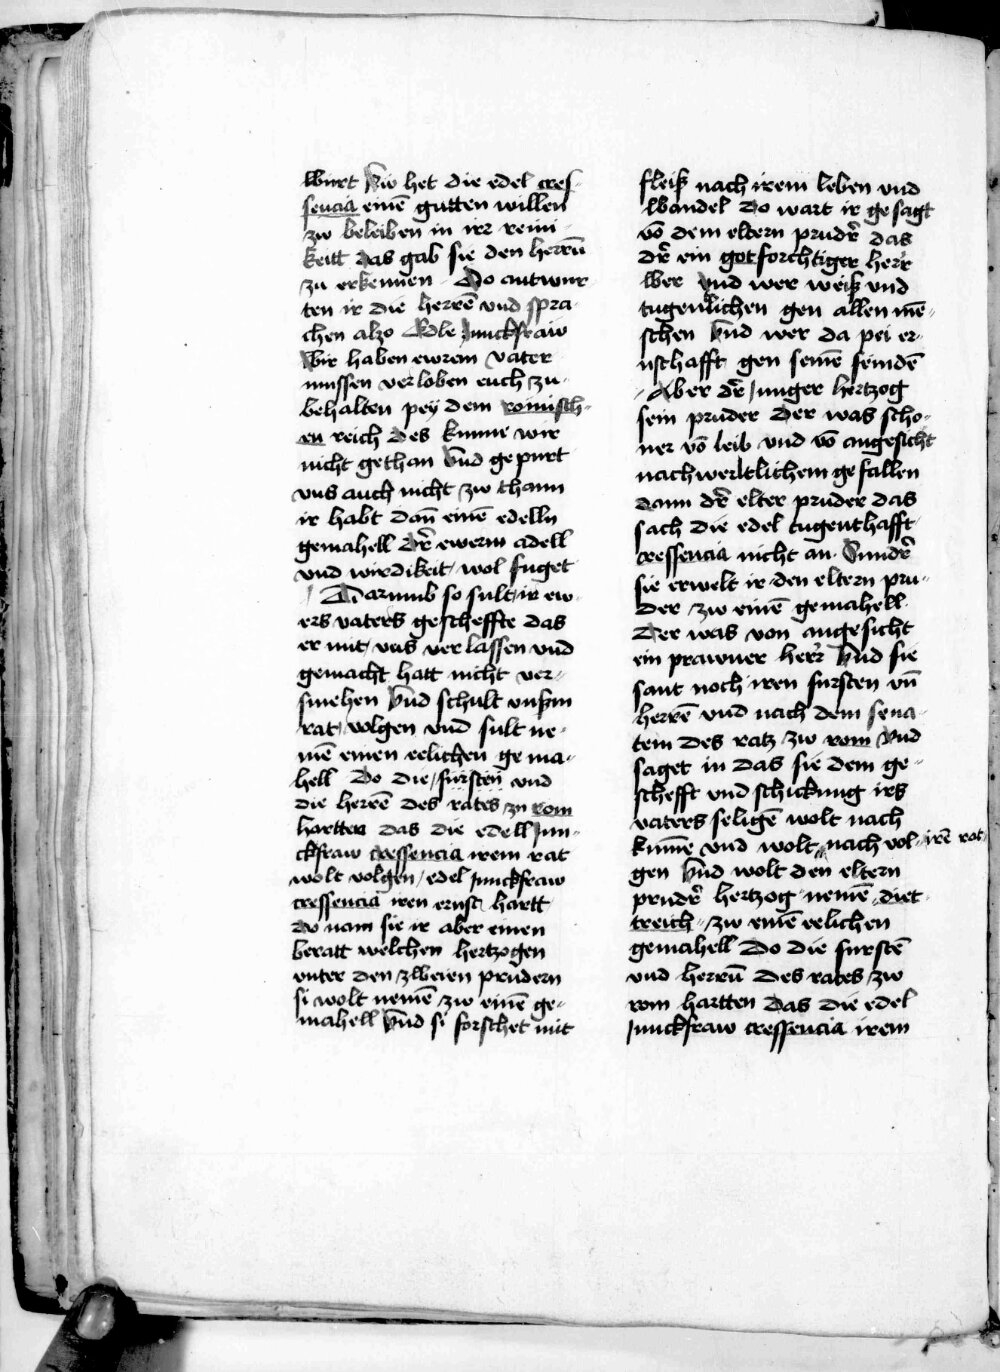 wurt Nw het die edel cres-
sencia einē gutten willen
zw beleiben in irr reini
keitt das gab sie den herrn̄
zu erkennen Do antwur
ten ir die herrē vnd spra-
chen alzo Edle Junckfraw
Wir haben ewrem vater
mussen verloben euch zu-
behalten pey dem romisch-
en reich des kunne wir
nicht gethan Vnd gepurt
vns auch nicht zw thann
ir habt dan̄ einē edelln
gemahell dr̄ ewerm adell
vnd wirdikeit wol fuget
Darumb so sult ir ew-
ers vaters gescheffte das
er mit vns verlassen vnd
gemacht hatt nicht ver-
smehen Vnd schult vnßm
rat volgen vnd sult ne-
mē einen eelichen gema-
hell Do die fursten vnd
die herrē des rates zu rom
hartten das die edell Jun-
ckfraw cressencia irem rat
wolt volgen edel Junckfraw
cressencia iren ernst hartt
do nam sie ir aber einen
beratt welchen hertzogen
vnter den zweien prudern
si wolt nemē zw einē ge-
mahell Vnd si forschet mit
fleiß nach irem leben vnd
wandel Do wart ir gesagt
vō dem eltern prudr̄ das
dr̄ ein gotforchtiger herr
wer Vnd wer weiß vnd
tugentlichen gen allen mē-
schen Vnd wer da pei er-
nsthafft gen seinē feindē
Aber dr̄ Junger hertzog
sein pruder der was scho-
ner vō leib vnd vō angesicht
nach werltlichem gefallen
dann dr̄ elter pruder das
sach die edel tugenthafft
cressencia nicht an Sundr̄
sie erwelt ir den eltern pru-
der zw einē gemahell
Der was von angesicht
ein prawner herr Vnd sie
sant noch iren fursten vn̄
herrē vnd nach dem sena-
tem des ratz zw rom Vnd
saget in das sie dem ge-
schefft vnd schickung irs
vaters seligē wolt nach
kumē vnd wolt nach vol- irē rot
gen Vnd wolt den eltern
prudr̄ hertzog nemē diet
treich zw einē eelichen
gemahell Do die furstē
vnd herrn̄ des rates zw
rom hartten das die edel
Junckfraw cressencia irem